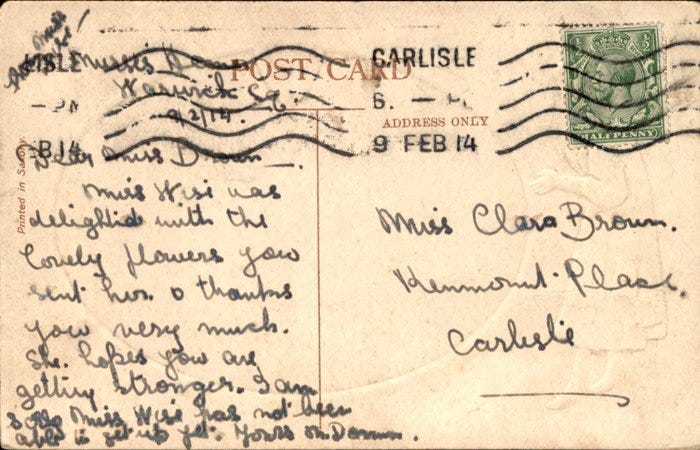 CARLISLE
6.
9 FEB 14
HALFPENNY
POST CARD
ADDRESS ONLY
Printed in Saxony.
Warwick Sq.
9/2/14.
Dear Miss Brown
Miss Wise was
delighted with the
lovely flowers you
sent her. & thanks
you very much.
She hopes you are
getting stronger. I am
sorry Miss Wise has not been
able to get up yet. Yours
Miss Clara Brown.
Kenmount Place.
Carlisle